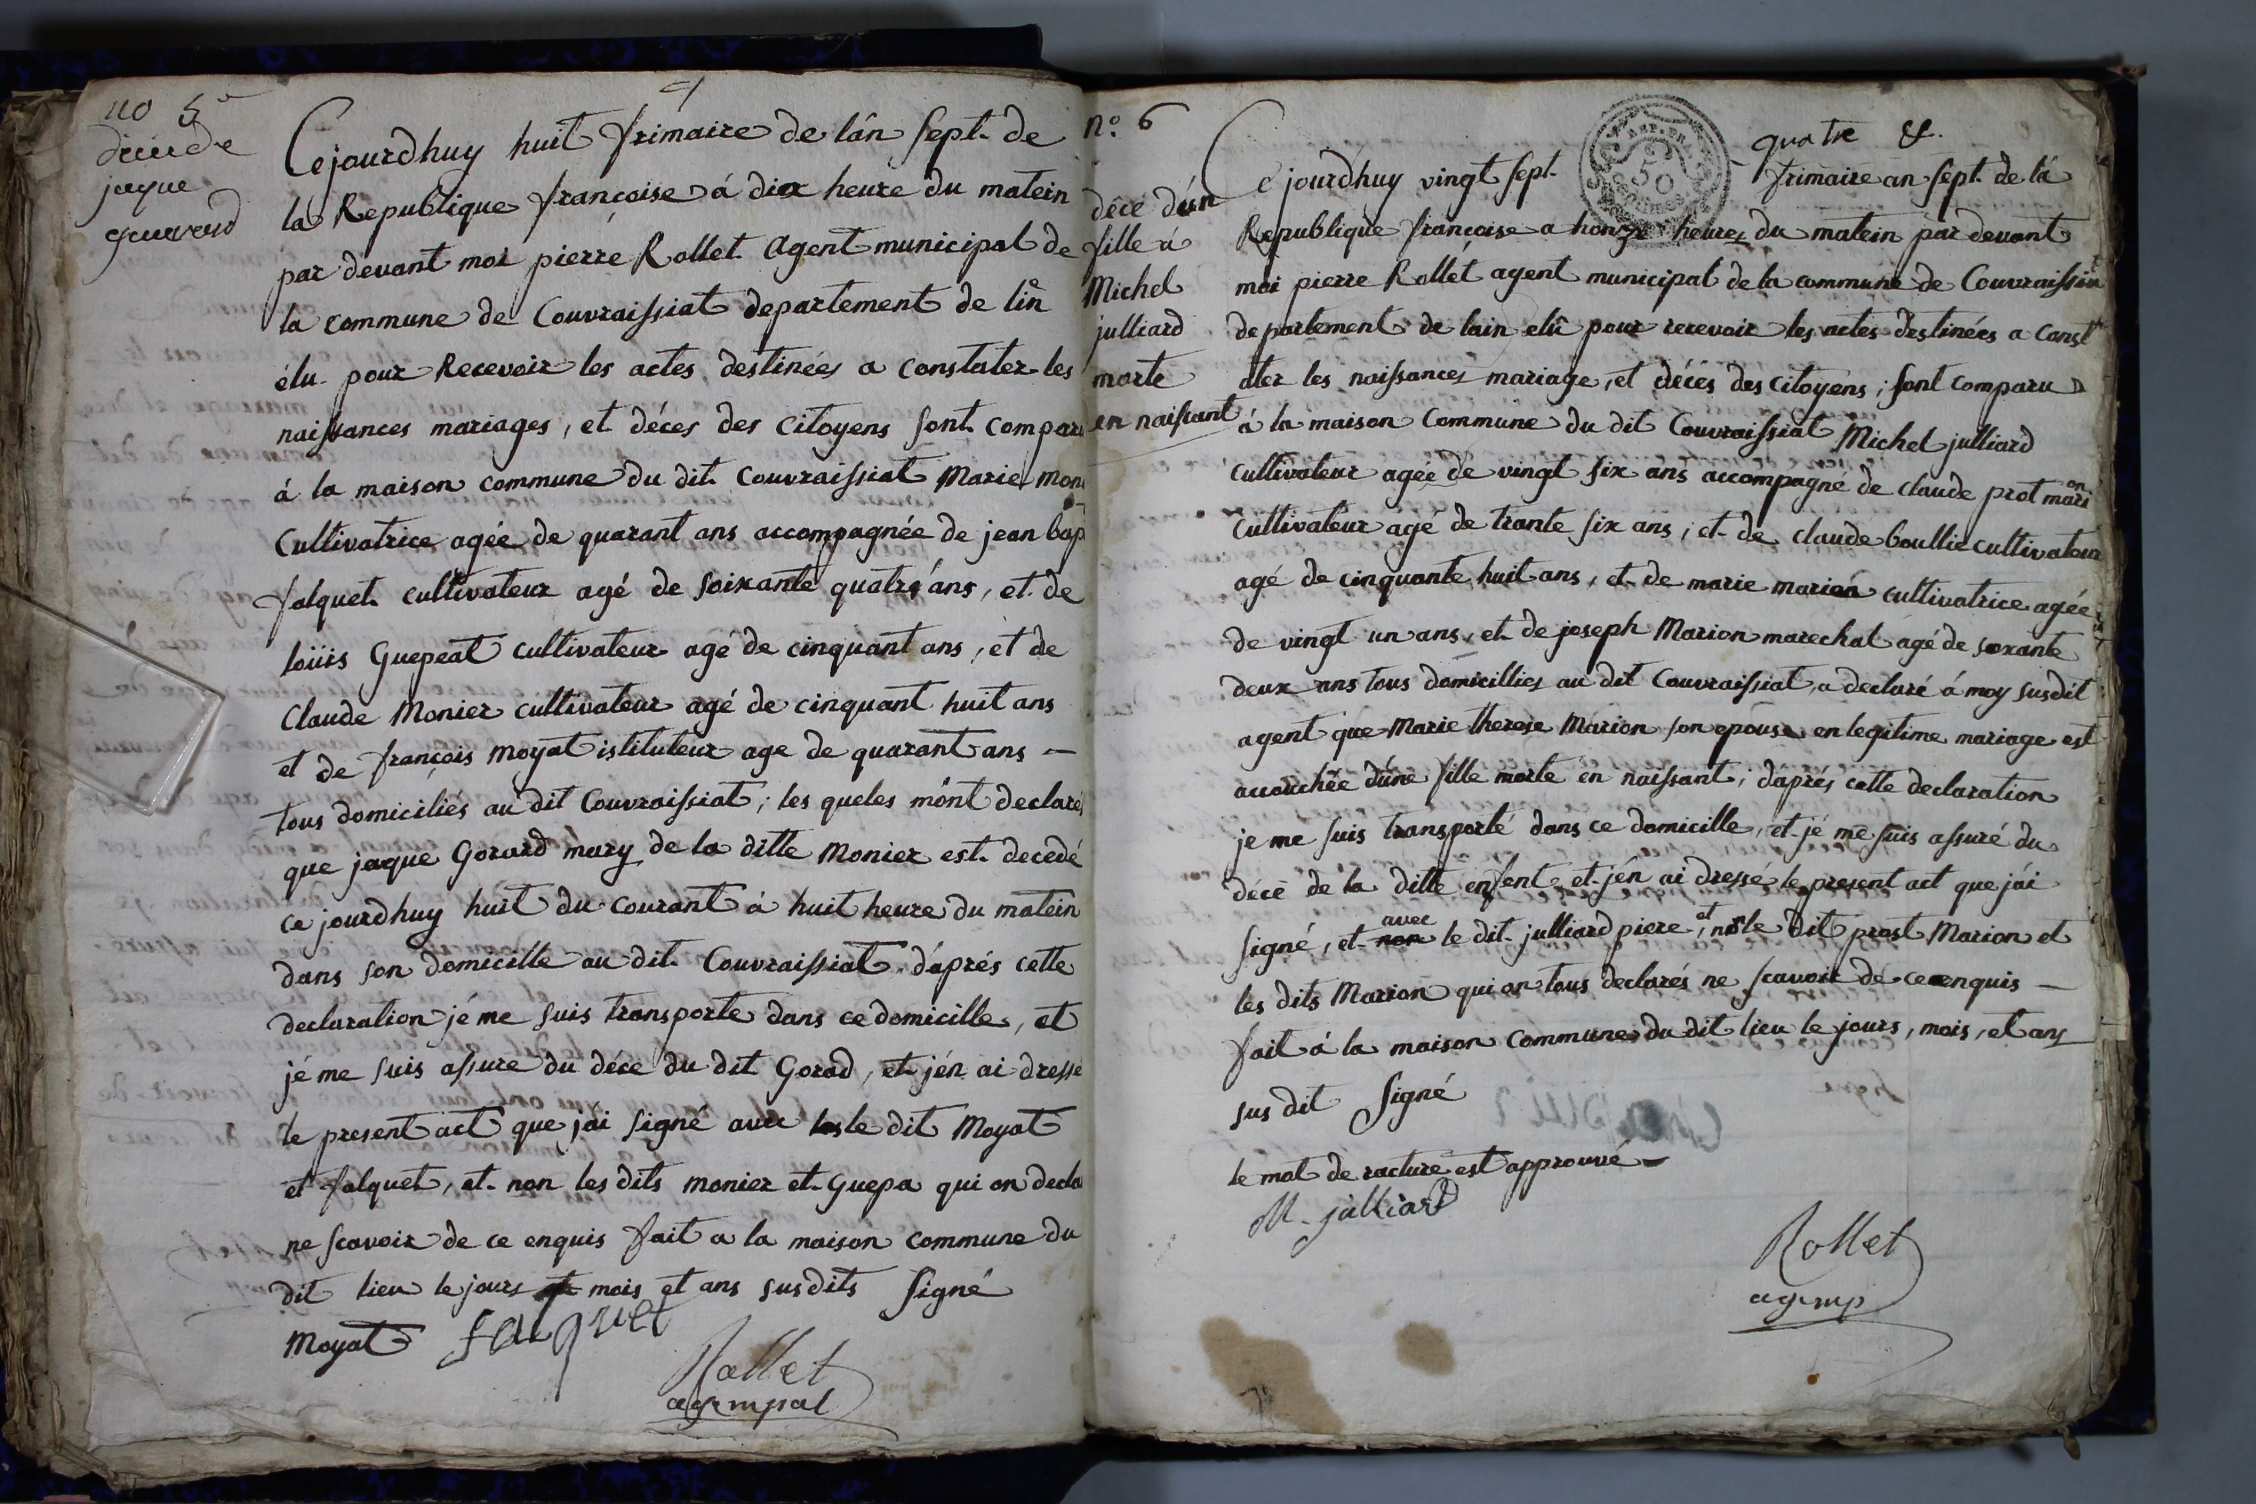 no 5e
décé de
jaque
gouraud
Cejourdhuy huit frimaire de lán sept. de
la Republique françoise á dix heure du matein
par devant moi pierre Rollet. agent municipal de
la commune de Couvraissiat departement de lin
élu pour Recevoir les actes destinées a constater les
naissances mariages, et déces des citoyens sont comparu
á la maison commune du dit. couvraissiat Marie mon
cultivatrice agée de quarant ans accompagnée de jean bap
falquet. cultivateur agé de soixante quatre ans, et de
loüis Guepeat cultivateur agé de cinquant ans, et de
claude Monier cultivateur agé de cinquant huit ans
et de françois moyat istituteur age de quarant ans —
tous domiciliés au dit Couvraissiat; les queles mónt declarés
que jaque Gorard mary de la ditte Monier est. decedé
ce jourdhuy huit du courant á huit heure du matein
dans son domicille au dit. Couvraissiat. dáprés cette
declaration jé me suis transporte dans ce domicille, et
jé me suis assure du déce du dit Gorad, et jén ai dressé
le present act que jái signé avec le dit Moyat
et falquet, et non les dits monier et Guepa qui on decla
ne scavoir de ce enquis fait a la maison commune du
dit lieu le jours et mois et ans susdits signé
Moyat falquet
Rollet
agempal
no. 6
décé dún
fille á
Michel
julliard
morte
en naissant
quatre &.
REP. FR.
50
CENTIMES
Ce jourdhuy vingt sept. frimaire an sept. de lá
Republique françoise a honze heures du matein par devant
moi pierre Rollet agent municipal de la commune de Couvraissiat
departement de lain elû pour recevoir les actes destinées a const
ater les naissances mariage, et déces des citoyens; sont comparu
á la maison commune du dit Couvraissiat Michel julliard
cultivateur agée de vingt six ans accompagné de claude prot marion
cultivateur agé de trante six ans, et de claude boullie cultivateur
agé de cinquante huit ans, et de marie marion cultivatrice agée
de vingt un ans, et de joseph Marion marechal agé de soxante
deux ans tous domicillies au dit Couvraissiat, a declaré á moy susdit
agent que Marie therese Marion son epouse en legitime mariage est
accouchée dúne fille morte en naissant; dáprés cette declaration
je me suis transporté dans ce domicille, et jé me suis assuré du
décé de la ditte enfent et jén ai dressé le present act que jái
signé, et non avec le dit julliard piere, et le dit prost Marion et
les dits Marion qui on tous declarés ne scavoir de ce enquis —
fait á la maison commune du dit lieu le jours, mois, et ans
sus dit signé
le mot de racture est approuvé —
M. julliard
Rollet
agemp